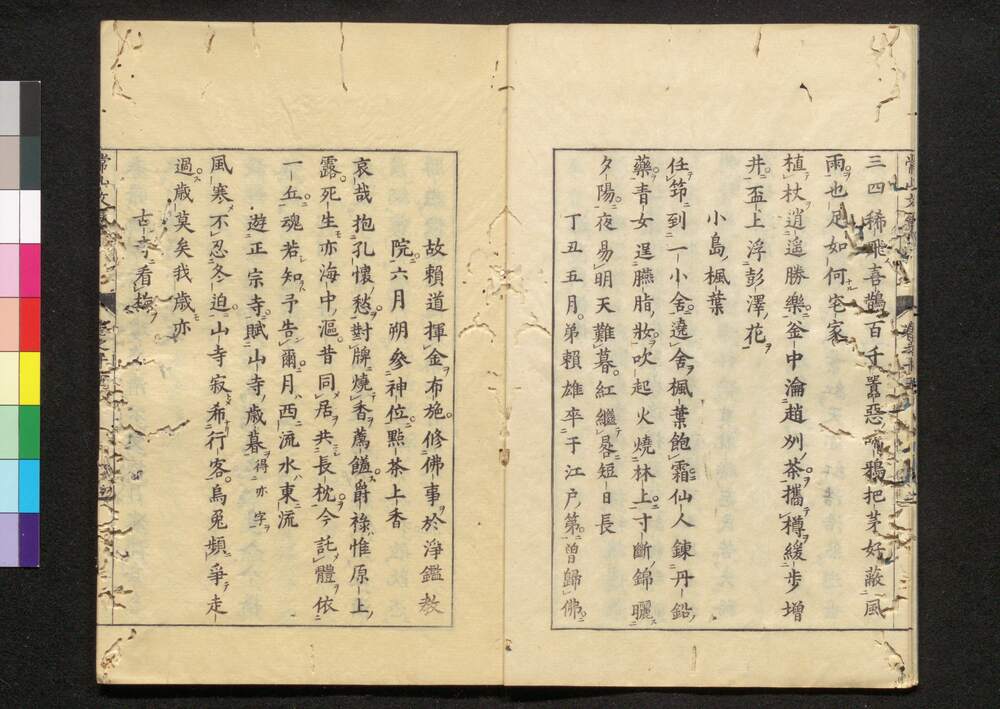 三四稀飛喜鵲百千噐惡鴉把茅好蔽風
雨也足如何宅家
植杖逍遙勝樂釜中瀹趙州茶攜樽緩步增
井盃上浮彭澤花
小島楓葉
任筇到一小舍遶舍楓葉飽霜仙人鍊丹鉛
藥青女逞臙脂妝吹起火燒林上寸斷錦曬
夕陽夜易明天難暮紅繼晷短日長
丁丑五月弟賴雄卒于江戶第曾歸佛
故賴道揮金布施修佛事於淨鑑教
院六月朔參神位點茶上香
哀哉抱孔懷愁對牌燒香薦饁爵祿惟原上
露死生亦海中漚昔同居共長枕今託體依
一丘魂若知予告爾月西流水東流
遊正宗寺賦山寺歲暮得亦字
風寒不忍冬迫山寺寂希行客烏兔頻爭走
過歲莫矣我歲亦
古寺看梅